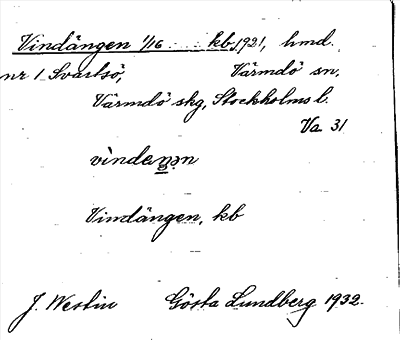 Vindängen 1/16 kb. 1921, hmd.
nr 1 Svartsö, Värmdö sn,
Värmdö skg, Stockholms l.
Va 31
Vindängen, kb
J. Westin Gösta Lundberg 1932.